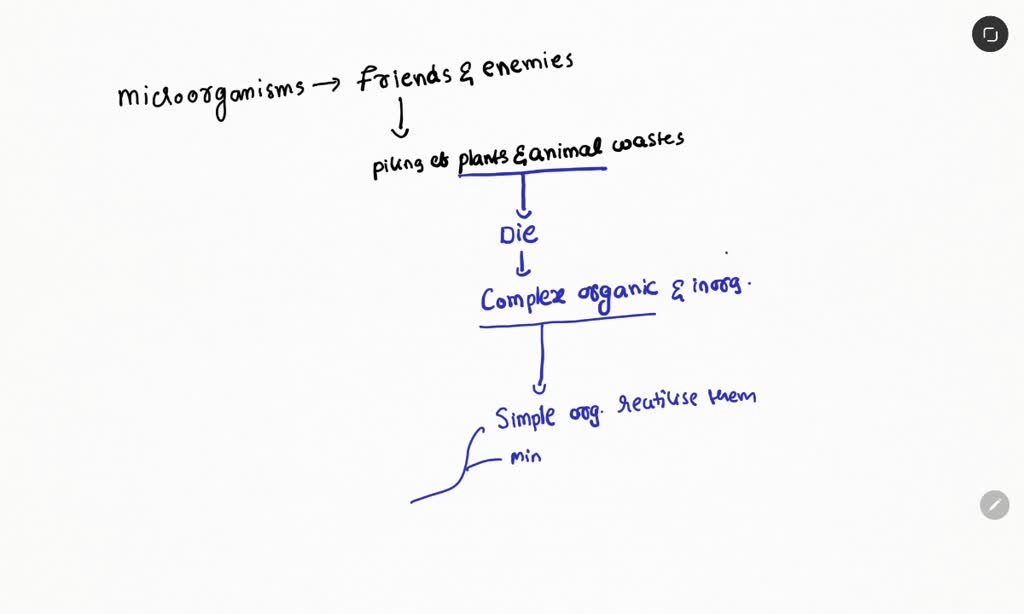 microorganisms → Friends & enemies
piling of plants & animal wastes
Die
Complex organic & inorg.
Simple org. reutilise them
min